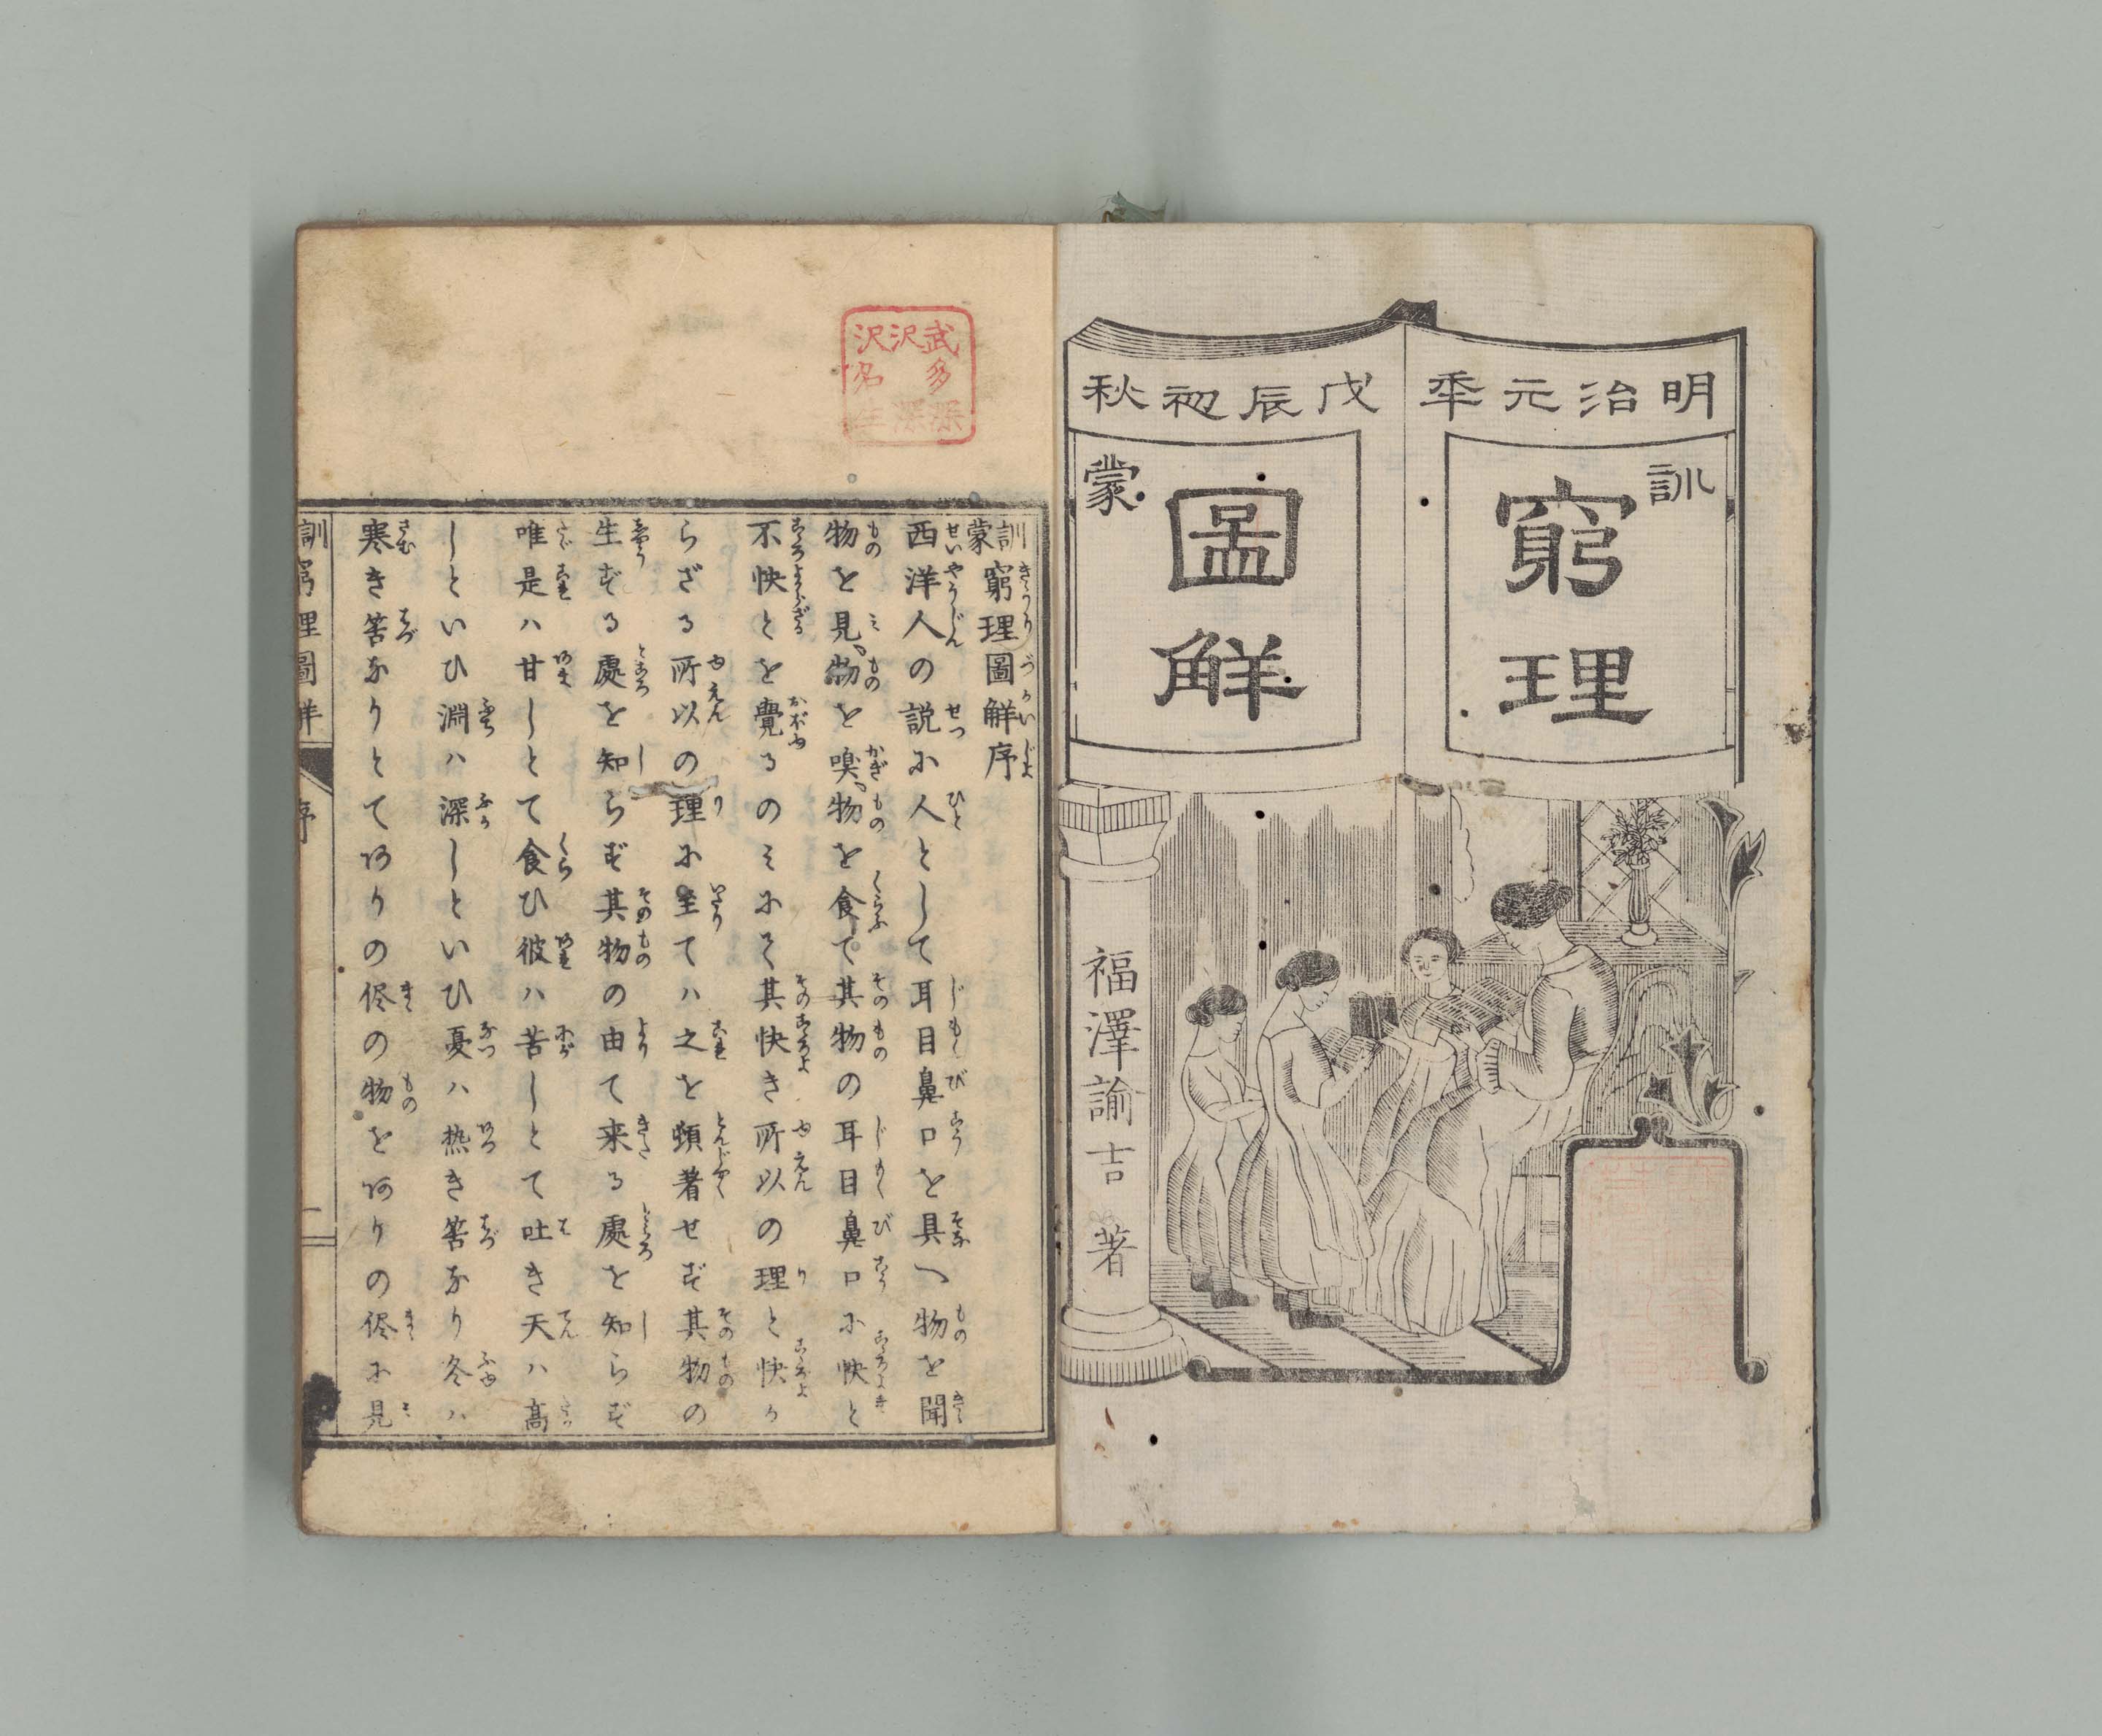 明治元年
戊辰初秋
訓
蒙
窮理
圖解
福澤諭吉著
訓蒙窮理圖解序
西洋人の説に人として耳目鼻口を具へ物を聞
物を見、物を嗅、物を食て其物の耳目鼻口に快と
不快とを覺るのミにて其快き所以の理と快か
らざる所以の理に至てハ之を頓著せず其物の
生ずる處を知らず其物の由て来る處を知らず
唯是ハ甘しとて食ひ彼ハ苦しとて吐き天ハ高
しといひ淵ハ深しといひ夏ハ熱き筈なり冬ハ
寒き筈なりとてありの侭の物をありの侭に見
訓窮理圖解
序
一
武多深
沢深
沢名